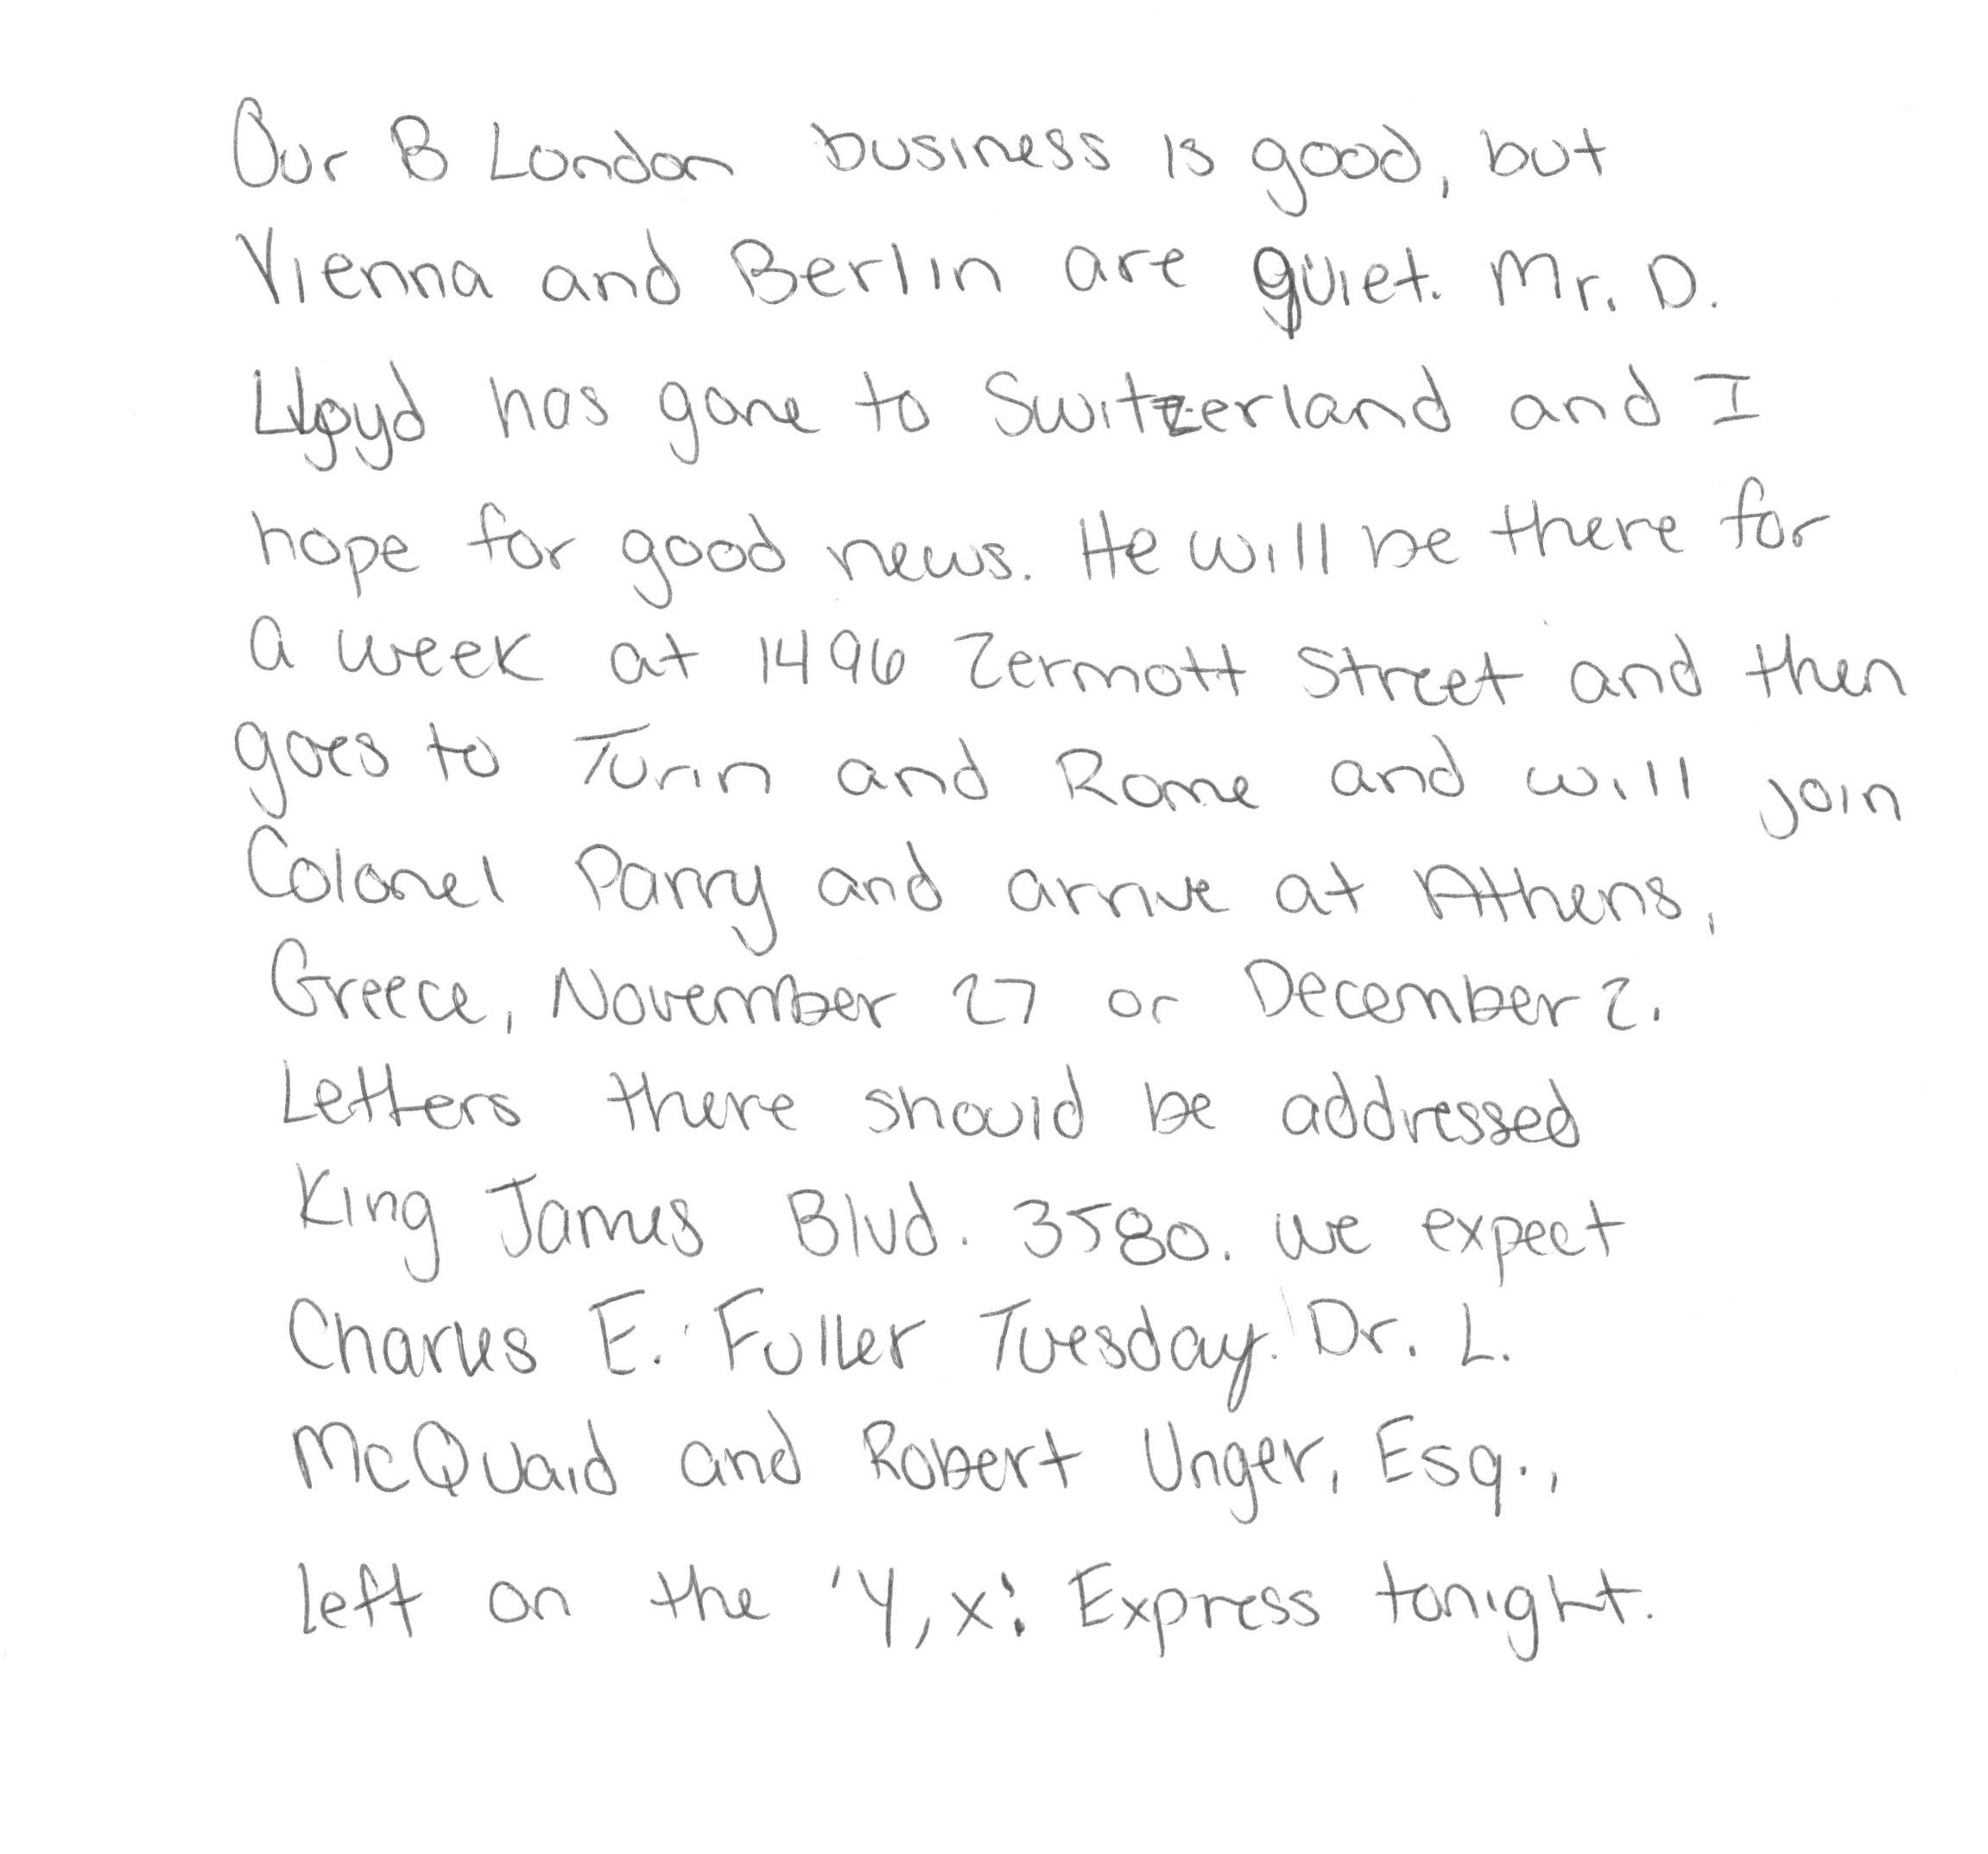 Our B London business is good, but
Vienna and Berlin are quiet. Mr. D.
Lloyd has gone to Switzerland and I
hope for good news. He will be there for
a week at 1496 Zermott Street and then
goes to Turin and Rome and will join
Colonel Parry and arrive at Athens,
Greece, November 27 or December 2.
Letters there should be addressed
King James Blvd. 3580. We expect
Charles E. Fuller Tuesday. Dr. L.
McQuaid and Robert Unger, Esq.,
left on the 'Y, X'. Express tonight.